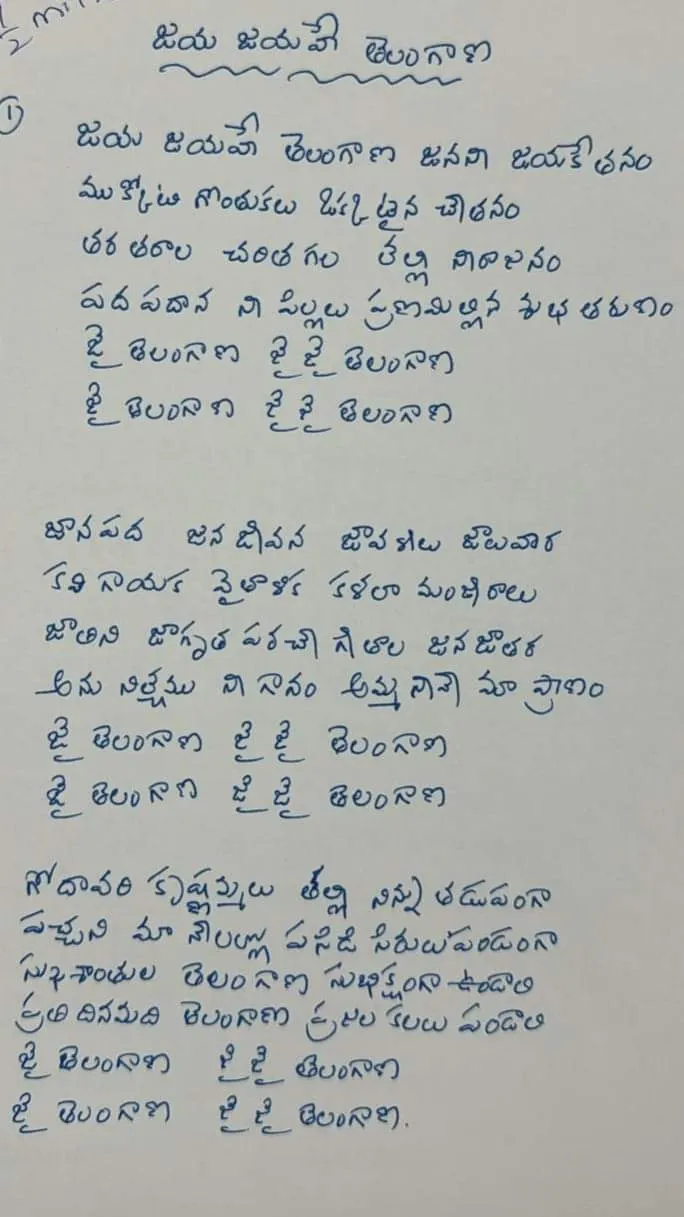 1/2
జయ జయహే తెలంగాణ
1
జయ జయహే తెలంగాణ జననీ జయకేతనం
ముక్కోటి గొంతుకలు ఒక్కటైన చేతనం
తరతరాల చరితగల తల్లీ నీరాజనం
పద పదాన నీ పిల్లలు ప్రణమిల్లిన శుభ తరుణం
జై తెలంగాణ జై జై తెలంగాణ
జై తెలంగాణ జై జై తెలంగాణ
జానపద జన జీవన జావళీలు జాలువార
కవి గాయక వైతాళిక కళలా మంజీరాలు
జాతిని జాగృత పరచే గీతాల జనజాతర
అను నిత్యము నీ గానం అమ్మ నీవే మా ప్రాణం
జై తెలంగాణ జై జై తెలంగాణ
జై తెలంగాణ జై జై తెలంగాణ
గోదావరి కృష్ణమ్మలు తల్లీ నిన్ను తడుపంగా
పచ్చని మా నేలల్లో పసిడి సిరులు పండంగా
సుఖశాంతుల తెలంగాణ సుభిక్షంగా ఉండాలి
ప్రతి దినమది తెలంగాణ ప్రజల కలలు పండాలి
జై తెలంగాణ జై జై తెలంగాణ
జై తెలంగాణ జై జై తెలంగాణ.